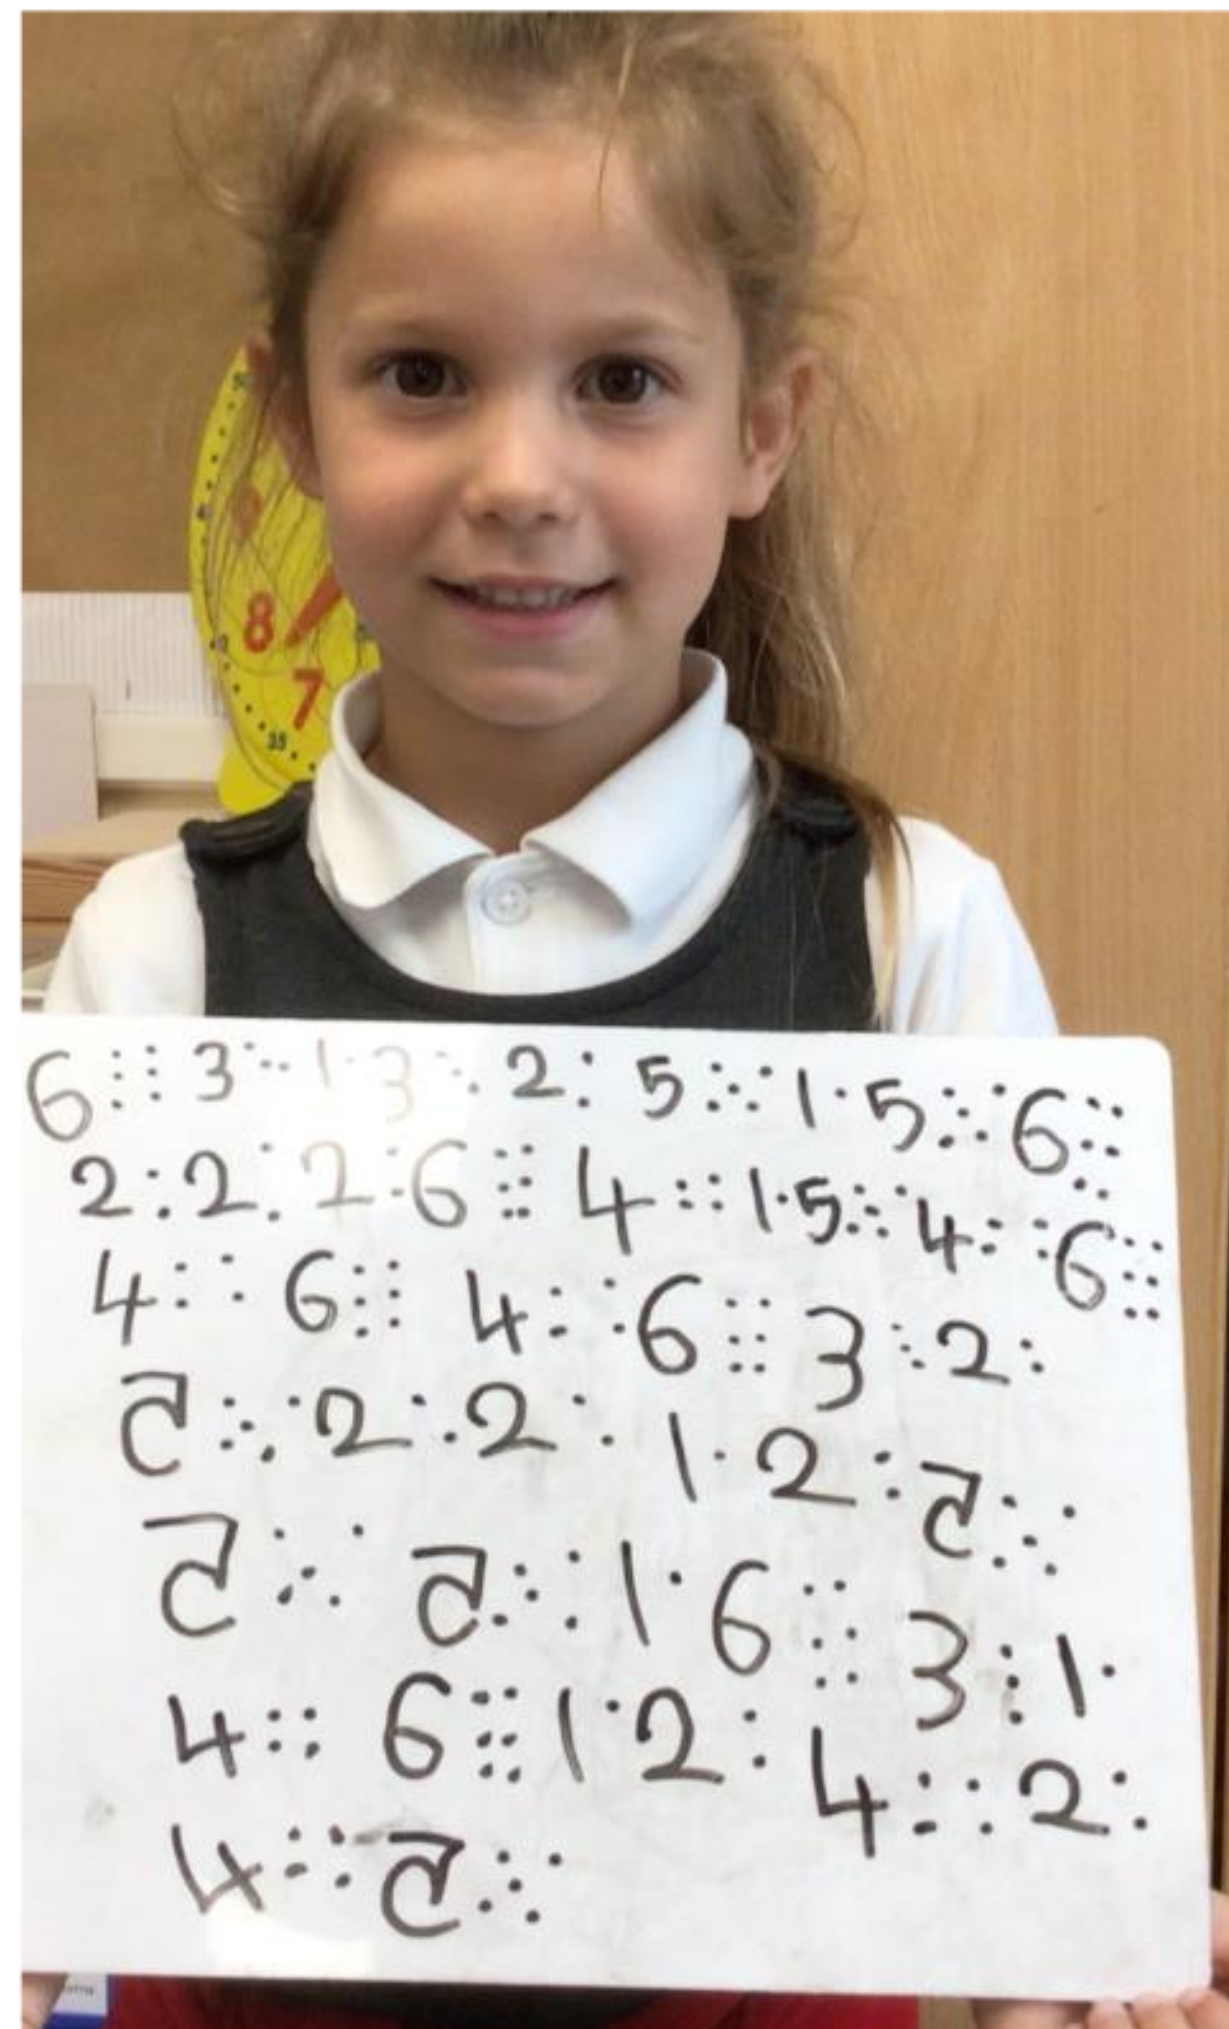 6 ⠿ 3 ⋱ 1 · 3 ⋱ 2 : 5 ⁙ 1 · 5 ⁙ 6 ⠿
2 : 2 : 2 : 6 ⠿ 4 ∷ 1 · 5 ⁙ 4 ∷ 6 ⠿
4 ∷ 6 ⠿ 4 ∷ 6 ⠿ 3 ⋱ 2 :
5 ⁙ 2 : 2 : 1 · 2 : 5 ⁙
5 ⁙ 5 ⁙ 1 · 6 ⠿ 3 ⋮ 1 ·
4 ∷ 6 ⠿ 1 · 2 : 4 ∷ 2 :
4 ∷ 5 ⁙
8
7
35